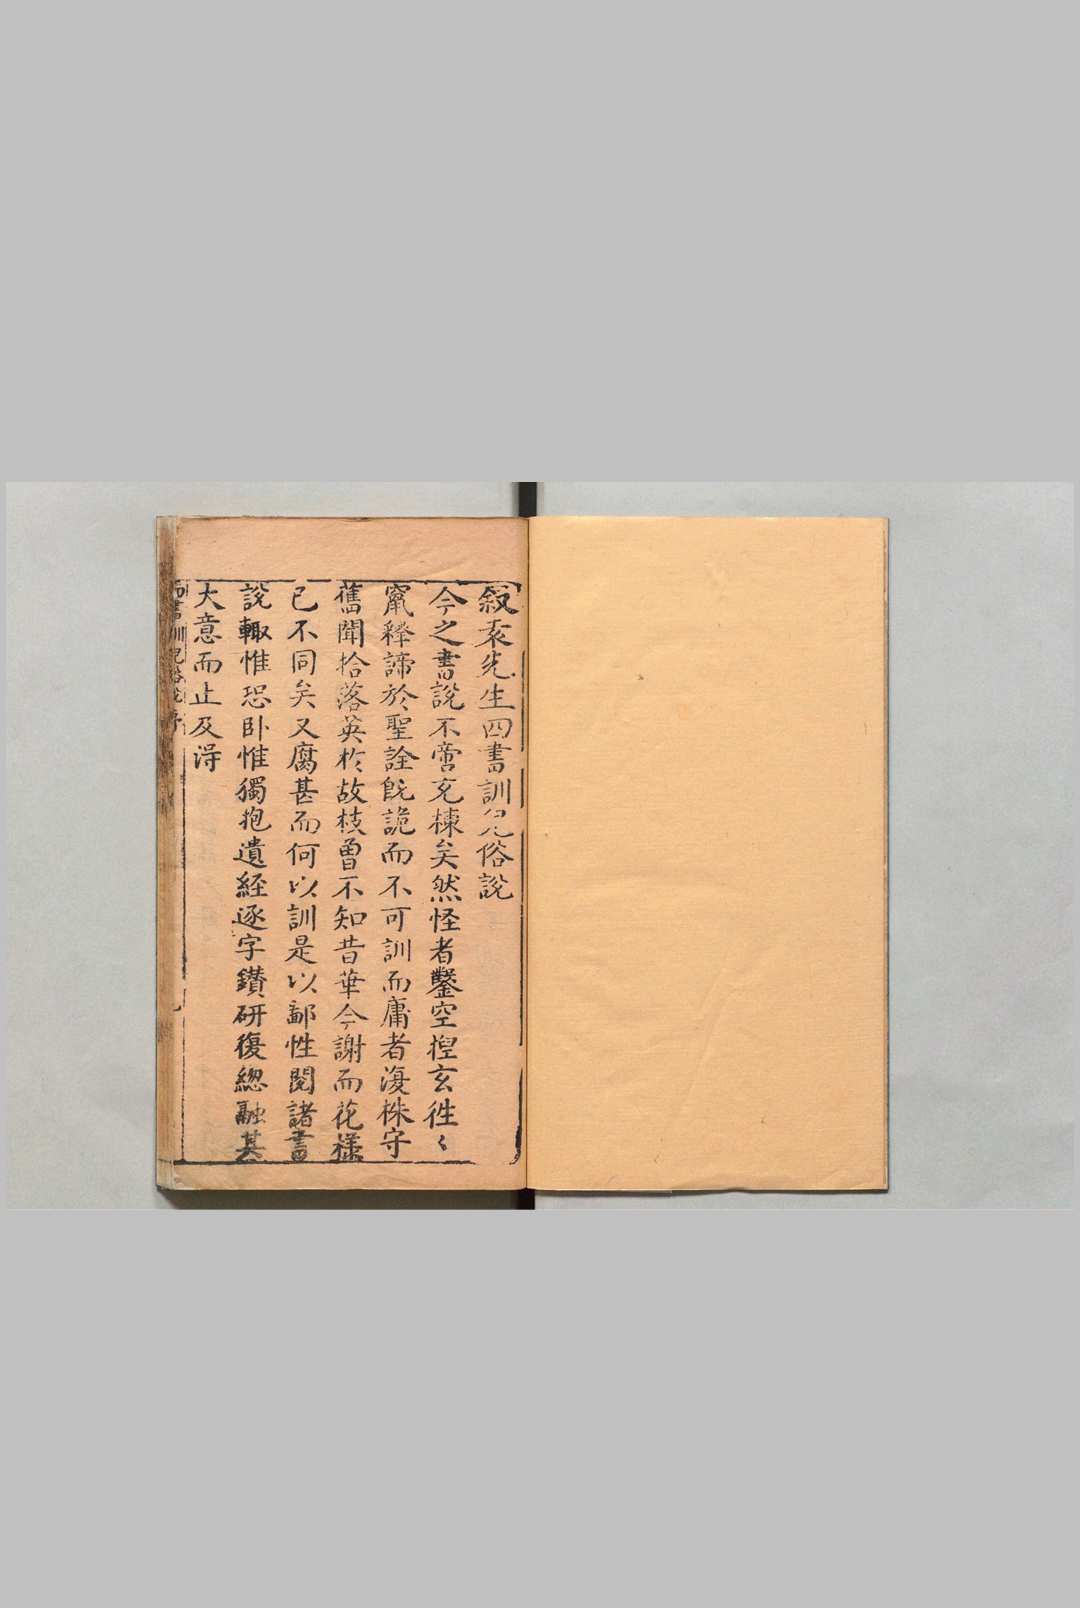 叙袁先生四書訓兒俗說
今之書說不啻充棟矣然怪者鑿空揑玄徃〻
竄釋諦於聖詮旣詭而不可訓而庸者復株守
舊聞拾落英扵故枝曾不知昔華今謝而花樣
已不同矣又腐甚而何以訓是以鄙性閱諸書
說輙惟恐卧惟獨抱遺經逐字鑚研復緫融其
大意而止及淂
四書訓兒俗說序